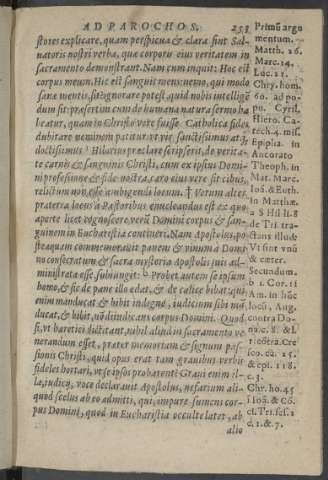 AD PAROCHOS. 253
stores explicare, quam perspicua & clara sint Sal-
uatoris nostri verba, quæ corporis eius veritatem in
sacramento demonstrant. Nam cum inquit: Hoc est
corpus meum, Hic est sanguis meus: nemo, qui modo
sanæ mentis sit, ignorare potest, quid nobis intelligẽ
dum sit: præsertim cum de humana natura sermo ha
beatur, quam in Christo vere fuisse Catholica fides
dubitare neminem patitur: vt vir sanctissimus atq;
doctissimus Hilarius præclare scripserit, de verita-
te carnis & sanguinis Christi, cum ex ipsius Domi-
ni professione & fide nostra, caro eius vere sit cibus,
relictum non esse ambigendi locum. † Verum alter
præterea locus a Pastoribus enucleandus est ex quo
aperte licet cognoscere, verũ Domini corpus & san-
guinem in Eucharistia contineri. Nam Apostolus, po
steaquam commemorauit panem & vinum a Domi
no consecratum & sacra mysteria Apostolis suis ad-
ministrata esse subiungit: b Probet autem se ipsum
homo, & sic de pane illo edat, & de calice bibat: qui
enim manducat & bibit indigne, iudicium sibi mã
ducat, & bibit, nõ diiudicans corpus Domini. Quod
si, vt hæretici dictitant, nihil aliud in sacramento ve
nerandum esset, præter memoriam & signum pas-
sionis Christi, quid opus erat tam grauibus verbis
fideles hortari, vt se ipsos probarent? Graui enim il-
la, iudicij, voce declarauit Apostolus, nefarium ali-
quod scelus ab eo admitti, qui, impure sumens cor-
pus Domini, quod in Eucharistia occulte latet, ab
alio
Primũ argu
mentum.
Matth. 26.
Marc. 14.
Luc. 22.
Chry. hom.
60. ad po-
po. Cyril.
Hiero. Ca-
tech. 4. mis.
Epipha. in
Ancorato
Theoph. in
Mat. Marc.
Ioã. & Euth.
in Matthæ.
a S Hil li. 8
de Tri. tra-
ctans illud:
Vt sint vnũ
& cæter.
Secundum.
b 1. Cor. 11
Am. in hũc
locũ, Aug.
contra Do-
nat. 8. &
epi. 118.
c. 3.
Chr. ho. 45
i Ioã. & Co.
c. 1. & 7.